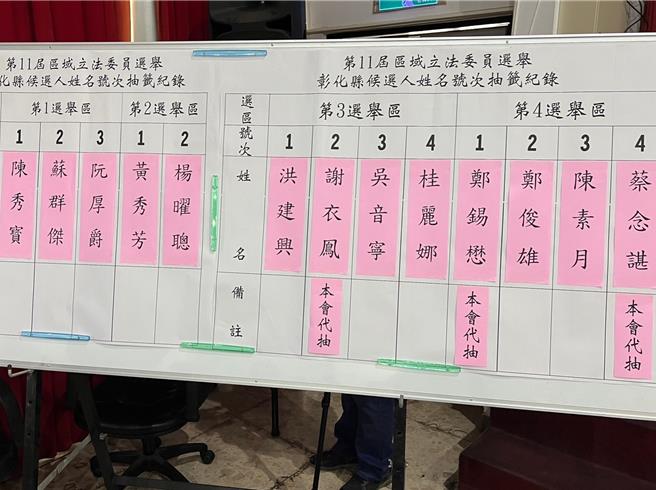 第11屆區域立法委員選舉
化縣候選人姓名號次抽籤紀錄
第1選舉區
第2選舉區
1 2 3 1 2
陳秀寳
蘇群傑
阮厚爵
黃秀芳
楊曜聰
第11屆區域立法委員選舉
彰化縣候選人姓名號次抽籤紀錄
選區號次
第3選舉區
第4選舉區
1 2 3 4 1 2 3 4
姓名
洪建興
謝衣鳳
吳音寧
桂麗娜
鄭錫懋
鄭俊雄
陳素月
蔡念諶
備註
本會代抽
本會代抽
本會代抽